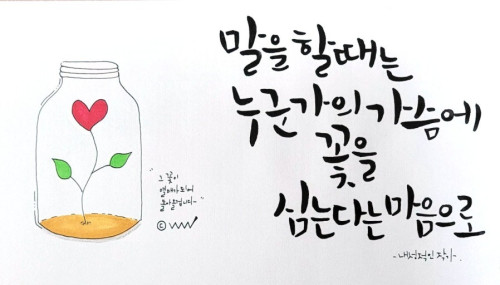 말을 할때는
누군가의 가슴에
꽃을
심는다는 마음으로
-내성적인 작가-
"그 꽃이
열매가 되어
돌아올겁니다~"